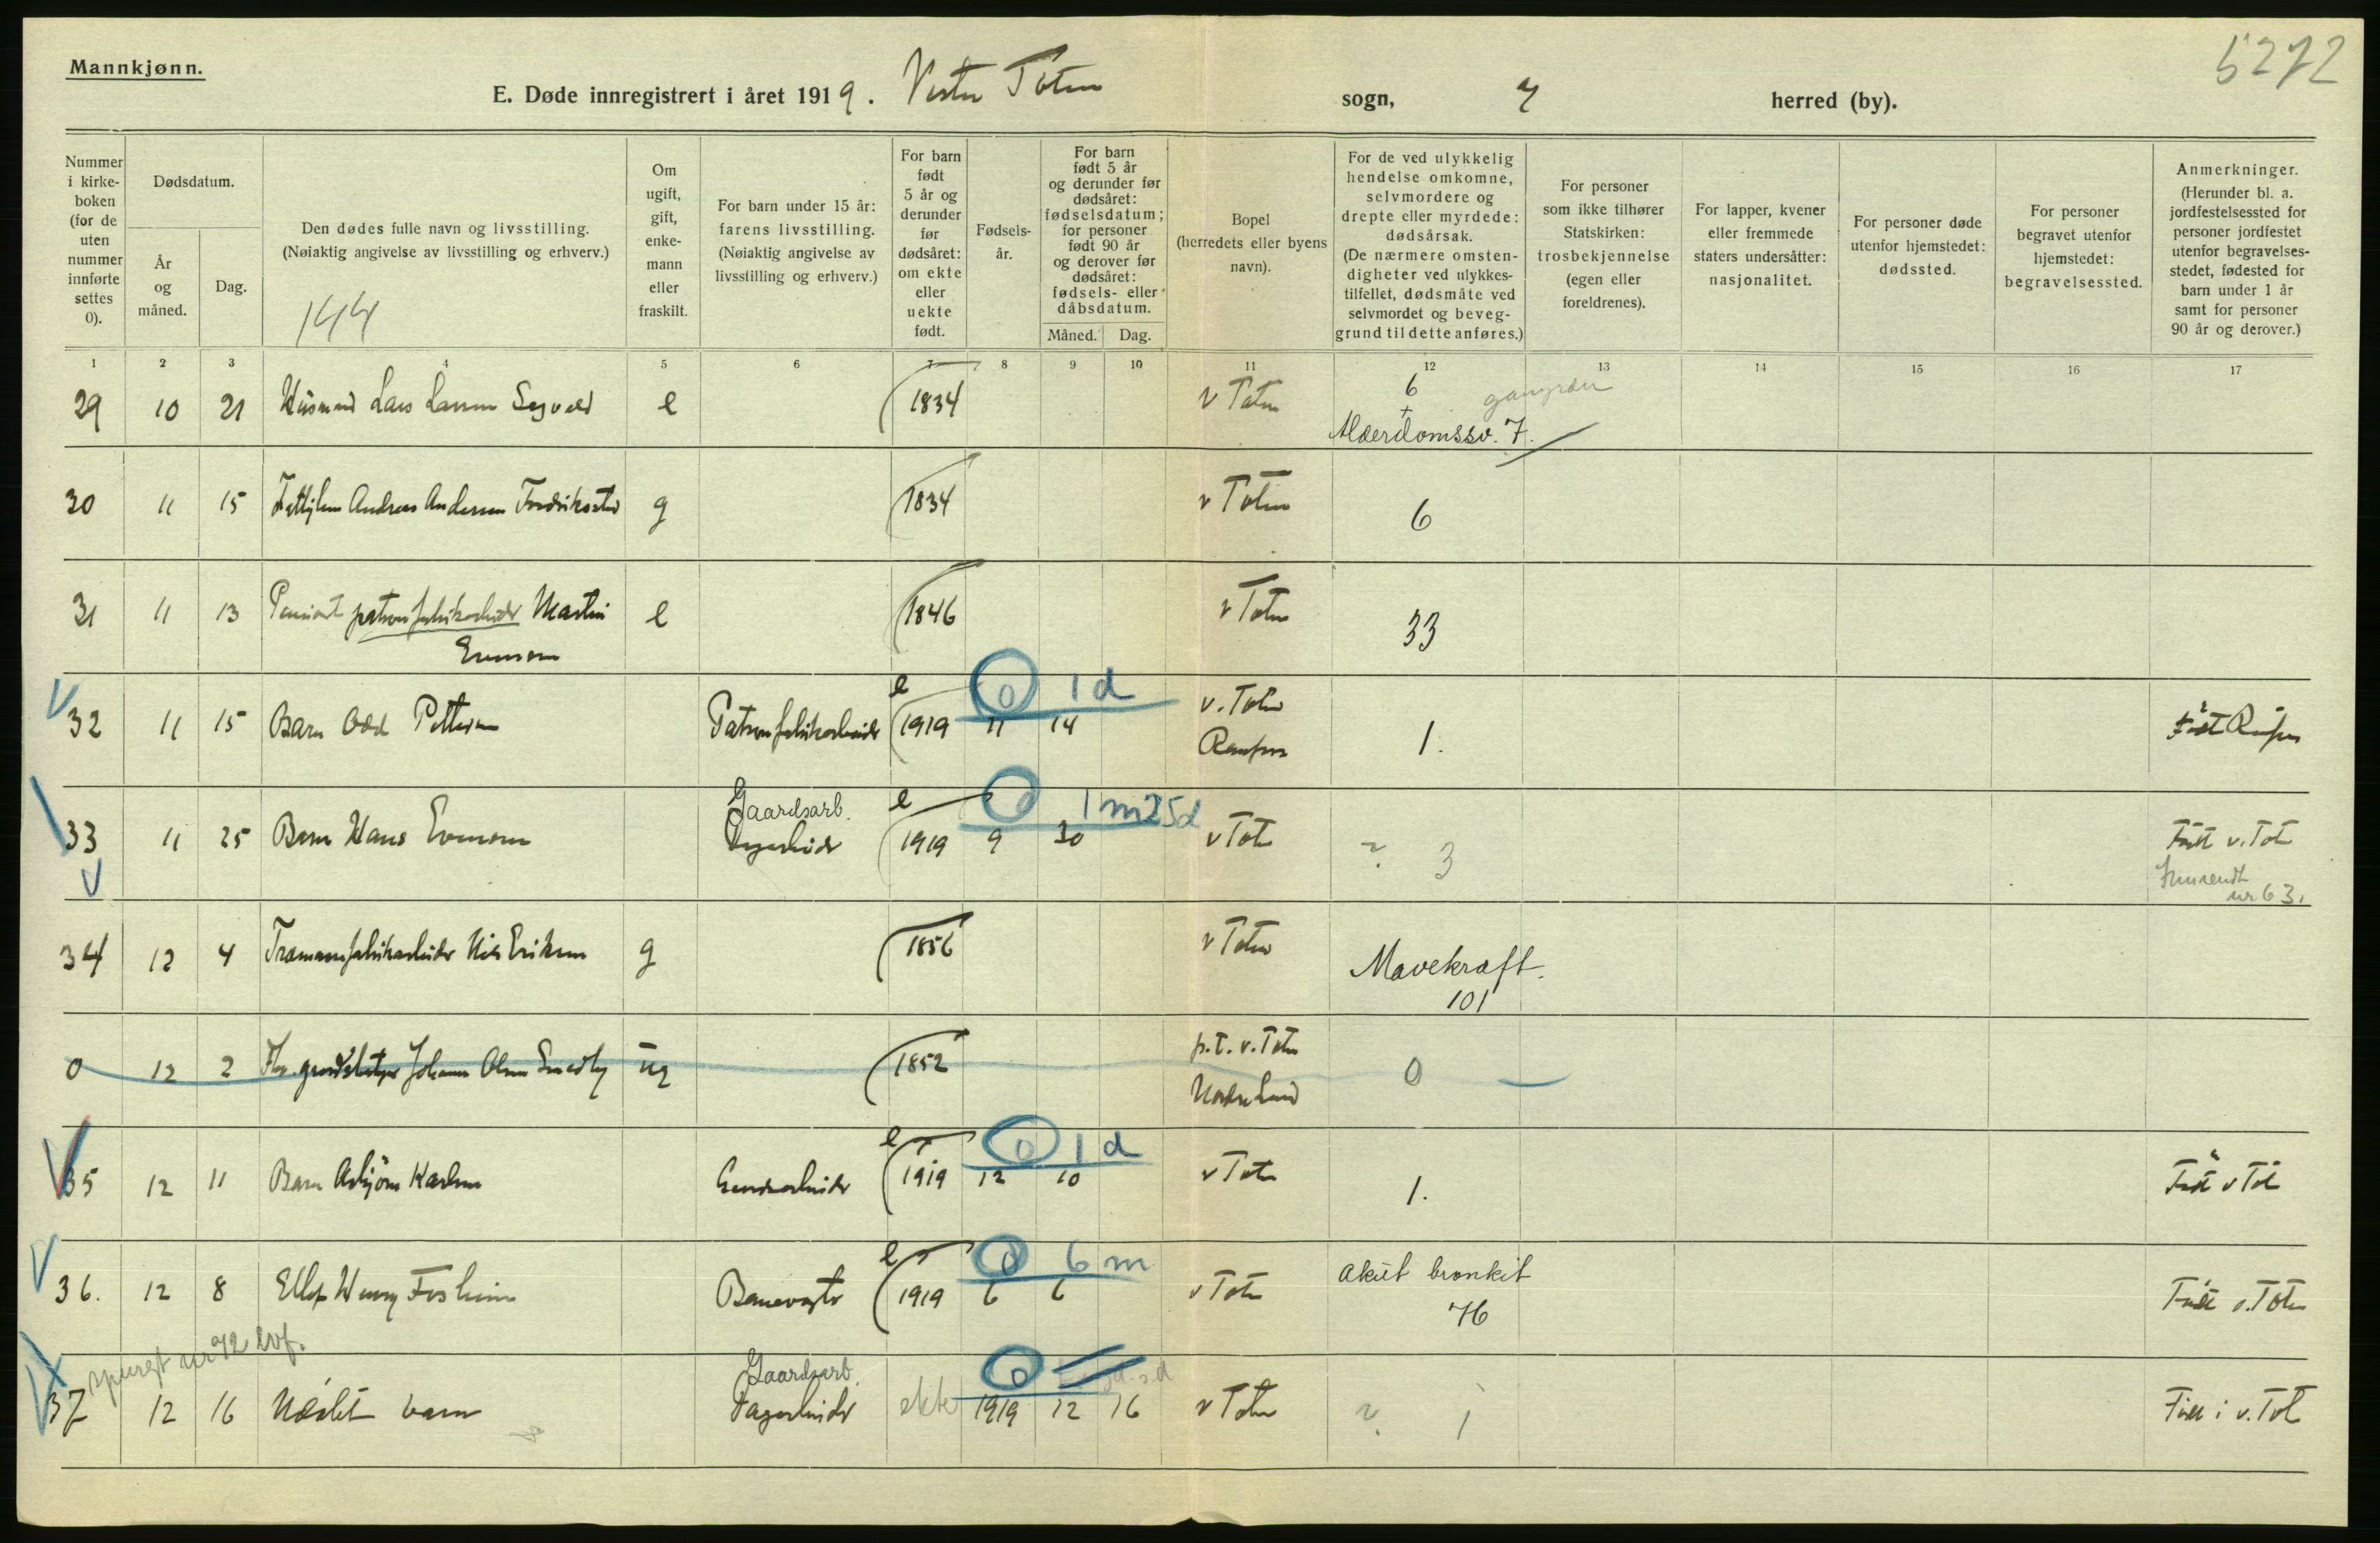 Mannkjønn.
5272
E. Døde innregistrert i året 1919. Vestre Toten sogn, herred (by).
Nummer i kirke-boken (for de uten nummer innførte settes 0).
Dødsdatum.
År og måned.
Dag.
Den dødes fulle navn og livsstilling.
(Nøiaktig angivelse av livsstilling og erhverv.)
144
Om ugift, gift, enke-mann eller fraskilt.
For barn under 15 år: farens livsstilling. (Nøiaktig angivelse av livsstilling og erhverv.)
For barn født 5 år og derunder før dødsåret: om ekte eller uekte født.
Fødsels-år.
For barn født 5 år og derunder før dødsåret: fødselsdatum; for personer født 90 år og derover før dødsåret: fødsels- eller dåbsdatum.
Måned. Dag.
Bopel (herredets eller byens navn).
For de ved ulykkelig hendelse omkomne, selvmordere og drepte eller myrdede: dødsårsak. (De nærmere omsten-digheter ved ulykkes-tilfellet, dødsmåte ved selvmordet og beveg-grund til dette anføres.)
For personer som ikke tilhører Statskirken: trosbekjennelse (egen eller foreldrenes).
For lapper, kvener eller fremmede staters undersåtter: nasjonalitet.
For personer døde utenfor hjemstedet: dødssted.
For personer begravet utenfor hjemstedet: begravelsessted.
Anmerkninger. (Herunder bl. a. jordfestelsessted for personer jordfestet utenfor begravelses-stedet, fødested for barn under 1 år samt for personer 90 år og derover.)
1 2 3 4 5 6 7 8 9 10 11 12 13 14 15 16 17
29 10 21 Husmand Lars Larsen e 1834 v Toten 6 gangræn
+
Alderdomssv. 7.
30 11 15 Andreas Andersen g 1834 v Toten 6
31 11 13 patronfabrikarbeider Martin e 1846 v Toten 33
Evensen
e 0 1 d
32 11 15 Barn Odd Pettersen Patronfabrikarbeider 1919 11 14 v. Toten 1. Født Raufoss
Raufoss
Gaardsarb. e 0 1 m 25 d
33 11 25 Barn Hans Evensen Dagarbeider 1919 9 30 v Toten ? 3 Født v. Tot
nr 63.
34 12 4 Nils Eriksen g 1856 v Toten Mavekræft.
101
0 12 2 Johannes Olsen ug 1852 p.t. v. Toten 0
Nordre Land
e 0 1 d
35 12 11 Barn Asbjørn Karlsen 1919 12 10 v Toten 1. Født v Tot
e 0 6 m
36. 12 8 Henry 1919 6 6 v Toten Akut bronkit Født v. Toten
76
spurgt nr 72 lvf.
Gaardsarb. 0
37 12 16 Udøbt barn Dagarbeider ekte 1919 12 16 v Toten ? 1 Født i v. Tot